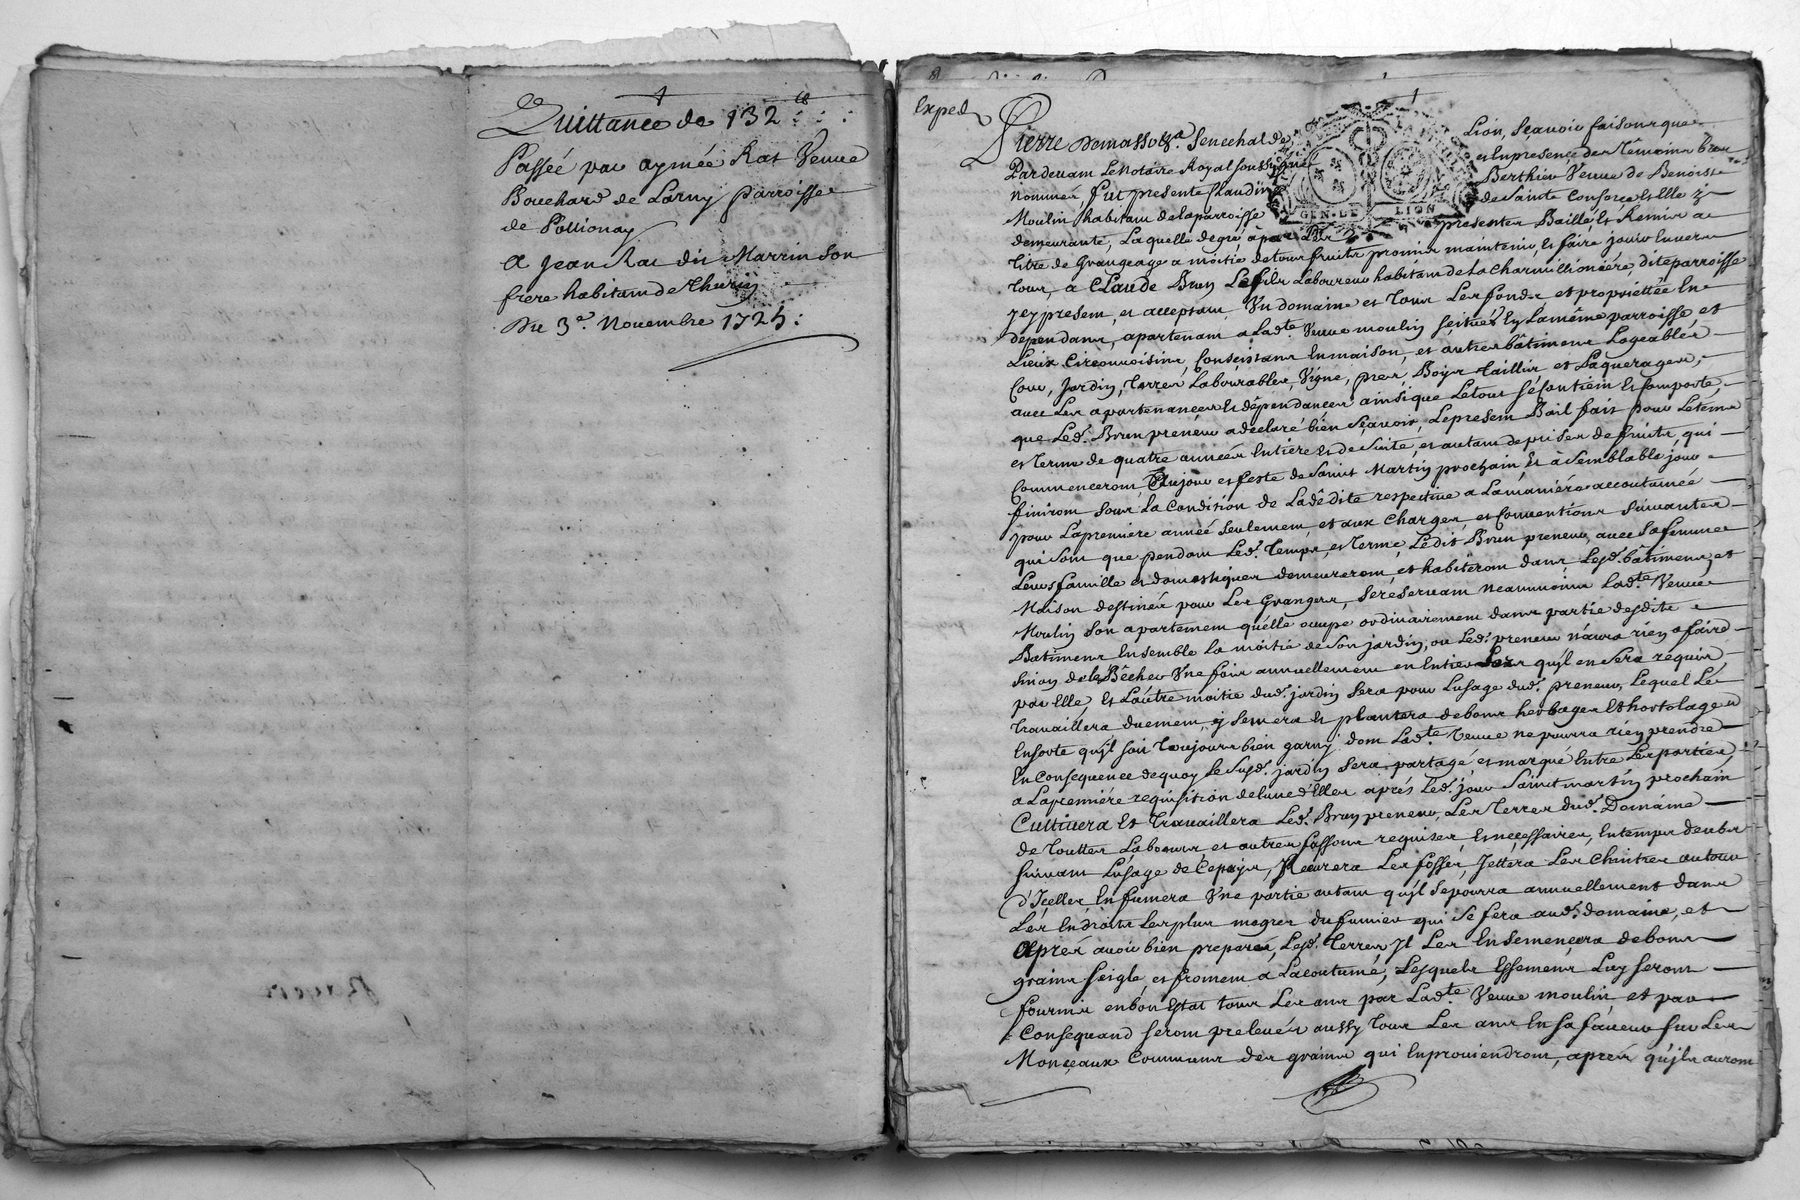 Quittance de 132 ₶
Passéé par aymée Rat Veuve
Bouchard de Larny parroisse
de Pollionay
A Jean Rat dit Marrin son
frere habitant de Thurin
Du 3e. Novembre 1725:
Exped
Pierre Demassoz. Senechal de Lion, Sçavoir faisons que
Pardevant Le Notaire Royal soussigné et En presence des Temoins bas
nommés, fut presente Claudine Berthier Veuve de Benoist
Moulin habitant de la parroisse de Sainte Consorce et Elle y
demeurante, Laquelle de gré a presentem. Baillé, Et Remis a
titre de Grangeage a moitié de tous fruits promis maintenir, et faire jouir Envers
tous, a Claude Brun Le fils Laboureur habitant de La Charmillioniére, dite parroisse
jcy present, et acceptant Un domaine et tous Les fonds et proprietéés En
dépendans, apartenant a Ladte. Veuve moulin scitués En La même parroisse, et
Lieux Circonvoisins, Consistant En maison, et autres bâtimens Logeables
Cour, Jardin, Terres Labourables, Vigne, prés Boijs taillis, et Paquerages,
avec Les apartenances Et dépendances ainsi que Le tout sé Contient Et Comporte,
que Led. Brun preneur a déclaré bien Sçavoir, Le present Bail fait pour Le tems
et Terme de quatre années Entieres Et de Suite, et autant de prises de fruits, qui
Commenceront Au jour et feste de Saint Martin prochain, Et à Semblable jour
finiront sous La Condition de La dédite respective a La maniére accoutumée
pour La premiere année seulement, et aux Charges, et Conventions Suivantes
qui sont que pendant Led. Temps, et Terme, Ledit Brun preneur, avec Sa femme
Leurs famille et domestiques demeureront, et habiteront dans Lesd. bâtimens, et
Maison destinés pour Les Grangers, se réservant neanmoins Ladte. Veuve
Moulin Son apartement qu'elle ocupe ordinairement dans partie desdits
Bâtimens Ensemble la moitié de son jardin, ou Led. preneur n'aura rien a faire
sinon de le Bêcher Une fois annuellement en Entier Lors qu'jl en Sera requis
par Elle, Et L'autre moitié dud. jardin Sera pour L'usage dud. preneur, Lequel Le
travaillera duement, y semera Et plantera de bons herbages Et hortolages
En sorte qu'jl soit Toujours bien garny dont Ladte. Veuve ne pourra rien prendre
En Consequence de quoy Le Susd. jardin Sera partagé, et marqué Entre Les parties,
a La premiére requisition de L'une d'Elles aprés Led. jour Saint martin prochain
Cultivera Et Travaillera Led. Brun preneur, Les Terres dud. Domaine
de Touttes Labours et autres fassons requises, Et necessaires, En temps deubs
suivant L'usage de Ce pays, Recurera Les fosses, Jettera Les Chintres autour
d'Jcelles, En fumera Une partie autant qu'jl Se pourra annuellement dans
Les Endroits Les plus megres du fumier qui Se fera aud. domaine, et
Aprés avoir bien preparés, Lesd. Terres Jl Les Ensemencera de bons
grains seigle, et froment a La Coutume, Lesquels Essemens Luy seront
fournis en bon Estat tous Les ans par Ladte. Veuve moulin et par
Consequand seront prelevés aussy Tous Les ans En Sa faveur sur Les
Monceaux Communs des grains qui En proviendront, aprés qu'jls auront
GEN. DE LION